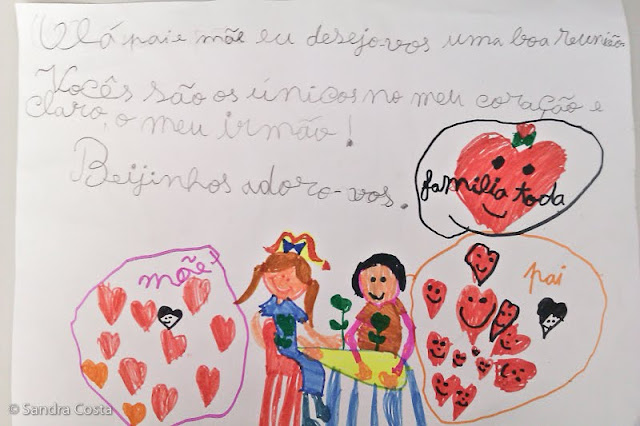 Olá pai e mãe eu desejo-vos uma boa reunião
Vocês são os únicos no meu coração e
claro, o meu irmão!
Beijinhos adoro-vos.
família toda
mãe
pai
© Sandra Costa